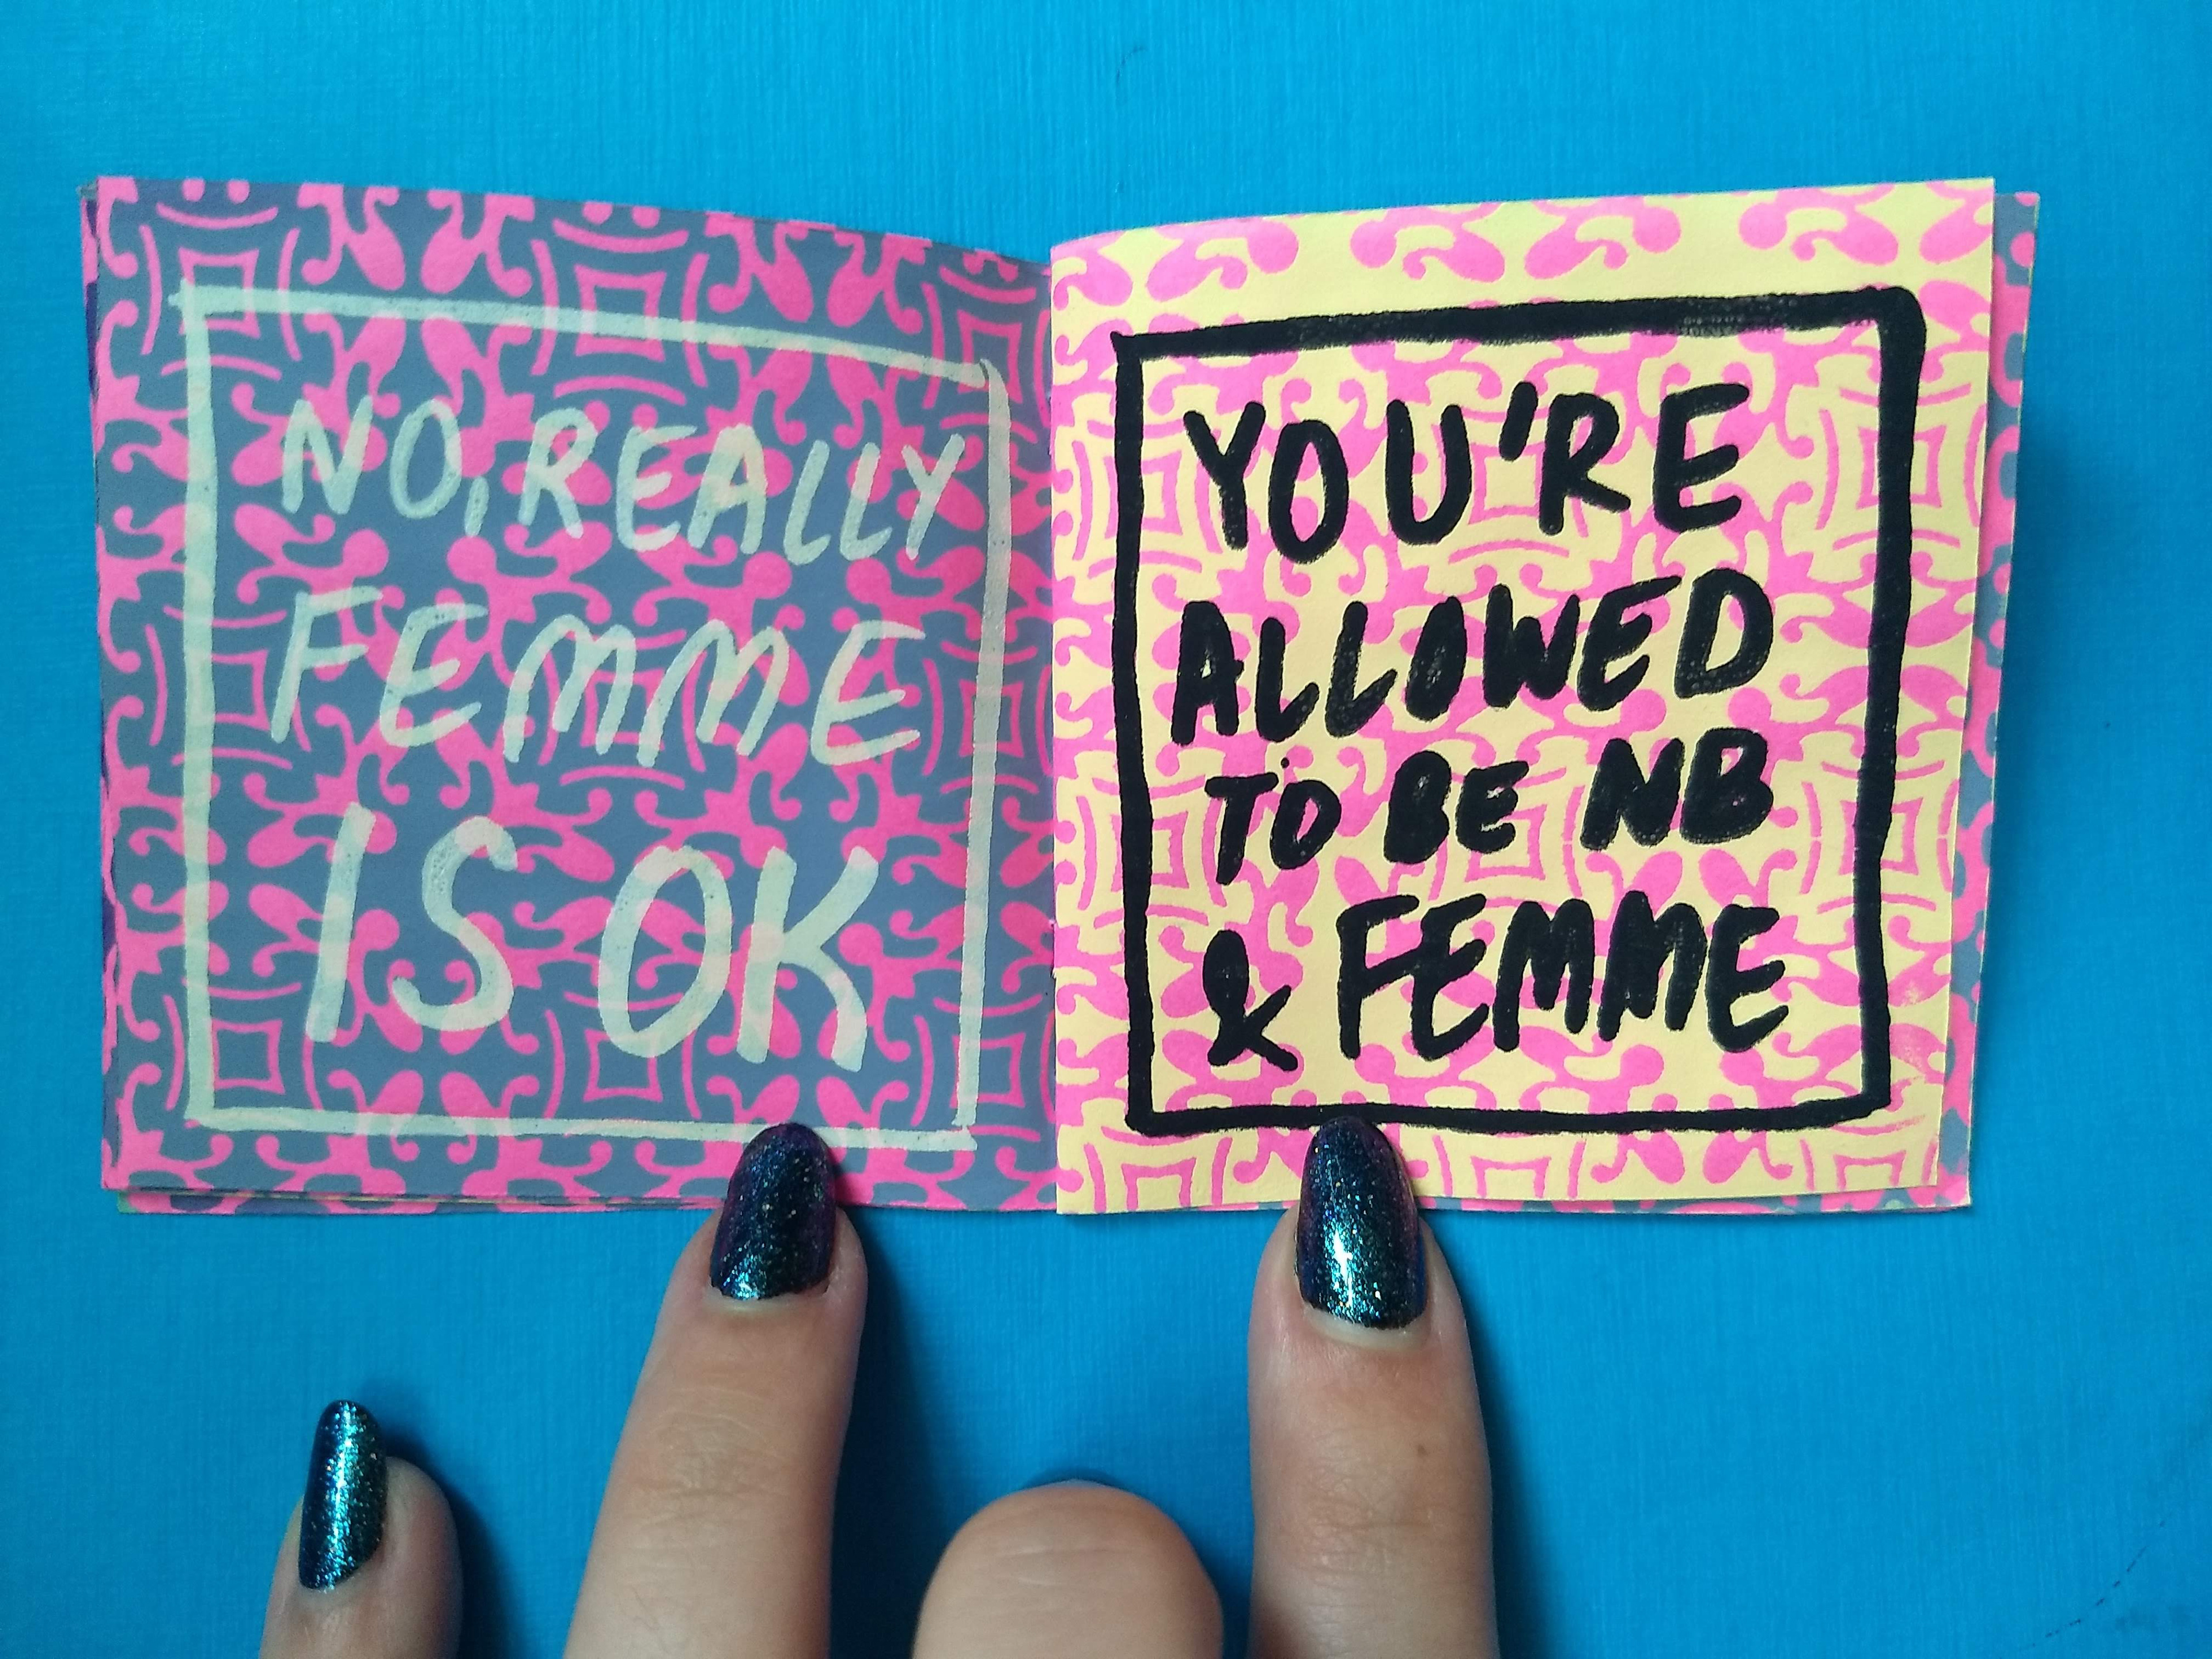 NO, REALLY
FEMME
IS OK
YOU'RE
ALLOWED
TO BE NB
& FEMME